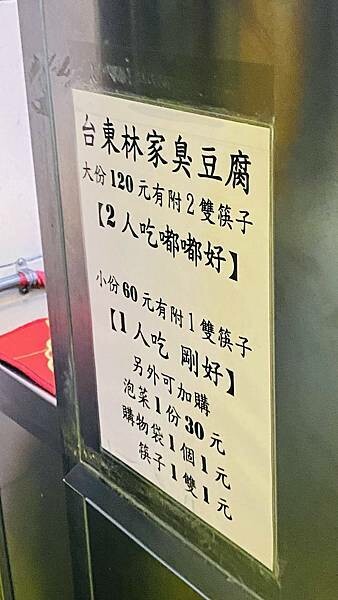 台東林家臭豆腐
大份120元有附2雙筷子
【2人吃嘟嘟好】
小份60元有附1雙筷子
【1人吃 剛好】
另外可加購
泡菜1份30元
購物袋1個1元
筷子1雙1元